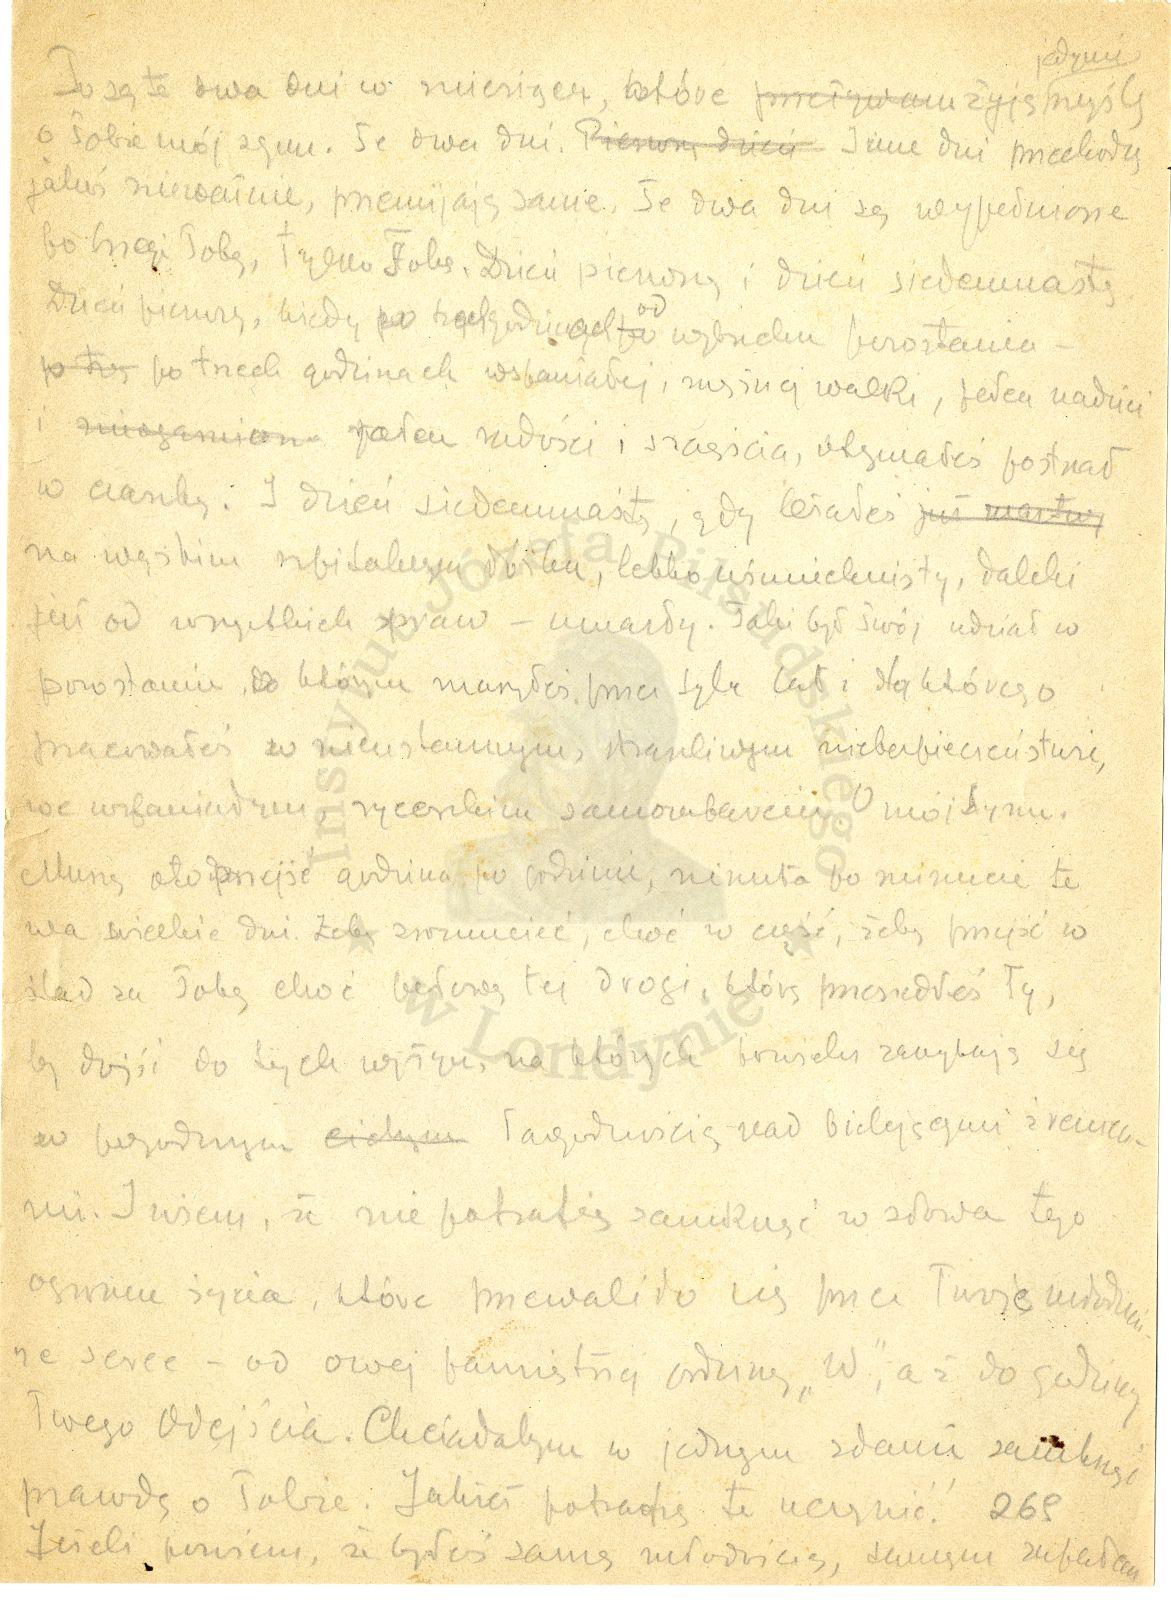 jedynie
To są te dwa dni w miesiącu, które przeżywam żyję myślą
o Tobie mój synu. Te dwa dni. Pierwszy dzień Inne dni przechodzą
jakoś nieważnie, przemijają same. Te dwa dni są wypełnione
po brzegi Tobą, tylko Tobą. Dzień pierwszy i dzień siedemnasty.
Dzień pierwszy, kiedy po trzech godzinach po od wybuchu powstania –
po trzech godzinach wspaniałej, mężnej walki, pełen nadziei
i pełen radości i szczęścia, otrzymałeś postrzał
w czaszkę. I dzień siedemnasty, gdy leżałeś już martwy
na wąskim szpitalnym łóżku, lekko uśmiechnięty, daleki
już od wszystkich spraw – umarły. Taki był Twój udział w
powstaniu, o którym marzyłeś przez tyle lat i dla którego
pracowałeś w nieustannym, straszliwym niebezpieczeństwie,
we wspaniałym, rycerskim samozaparciu. O mój Synu.
Muszę oto przejść godzina po godzinie, minuta po minucie te
dwa wielkie dni. Żeby zrozumieć, choć w części, żeby przejść w
ślad za Tobą choć połowę tej drogi, którą przeszedłeś Ty,
by dojść do tych wyżyn, na których powieki zamykają się
w pogodnym cichym łagodnością nad bielejącymi źrenica-
mi. I wiem, że nie potrafię zamknąć w słowa tego
ogromu życia, które przewaliło się przez Twoje młodzień-
cze serce – od owej pamiętnej godziny „W”, aż do godziny
Twego Odejścia. Chciałabym w jednym zdaniu zamknąć
prawdę o Tobie. Jakże potrafię to uczynić! 269
Jeżeli powiem, że byłeś samą młodością, samym zapałem
Instytut Józefa Piłsudskiego
w Londynie